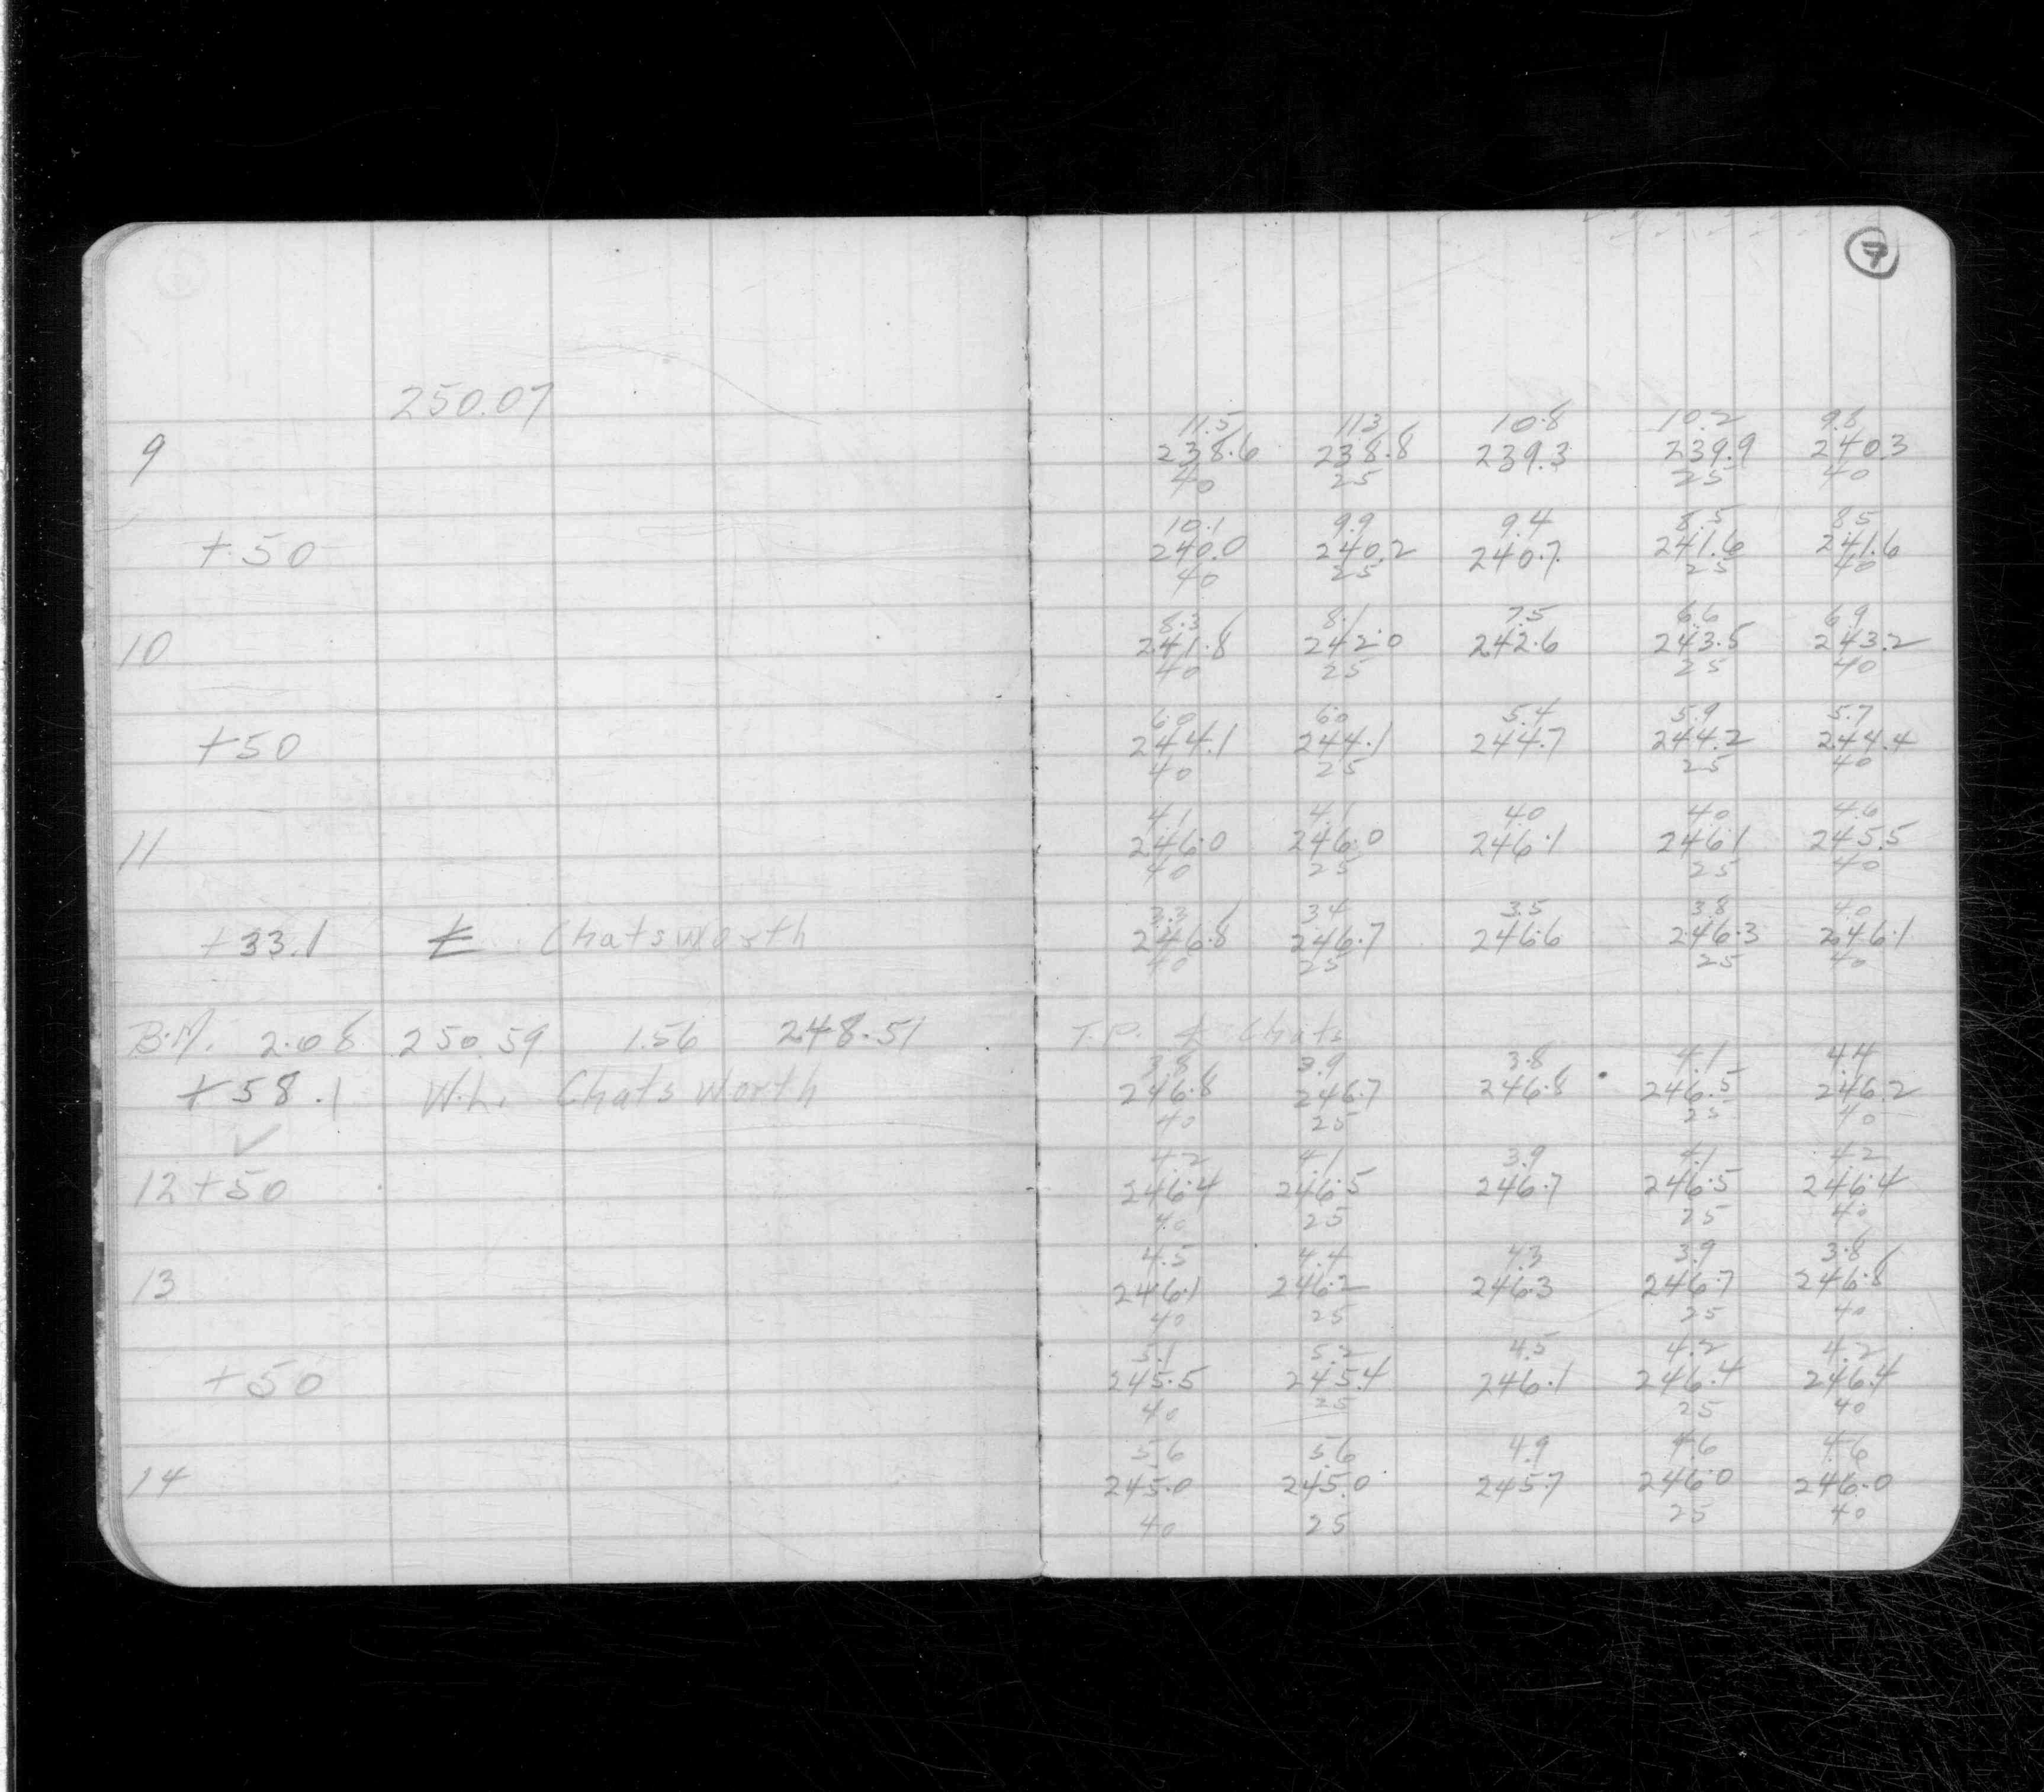 7
250.07
11.5 11.3 10.8 10.2 9.8
9 238.6 238.8 239.3 239.9 240.3
40 25 25 40
10.1 9.9 9.4 8.5 8.5
+50 240.0 240.2 240.7 241.6 241.6
40 25 25 40
8.3 8.1 7.5 6.6 6.9
10 241.8 242.0 242.6 243.5 243.2
40 25 25 40
6.0 6.0 5.4 5.9 5.7
+50 244.1 244.1 244.7 244.2 244.4
40 25 25 40
4.1 4.1 4.0 4.0 4.6
11 246.0 246.0 246.1 246.1 245.5
40 25 25 40
3.3 3.4 3.5 3.8 4.0
+33.1 Chatsworth 246.8 246.7 246.6 246.3 246.1
40 25 25 40
B.M. 2.08 250.59 1.56 248.51 T.P. Chats
3.8 3.9 3.8 4.1 4.4
+58.1 W.L. Chatsworth 246.8 246.7 246.8 246.5 246.2
40 25 25 40
4.2 4.1 3.9 4.1 4.2
12+50 246.4 246.5 246.7 246.5 246.4
40 25 25 40
4.5 4.4 4.3 3.9 3.8
13 246.1 246.2 246.3 246.7 246.8
40 25 25 40
5.1 5.2 4.5 4.2 4.2
+50 245.5 245.4 246.1 246.4 246.4
40 25 25 40
5.6 5.6 4.9 4.6 4.6
14 245.0 245.0 245.7 246.0 246.0
40 25 25 40